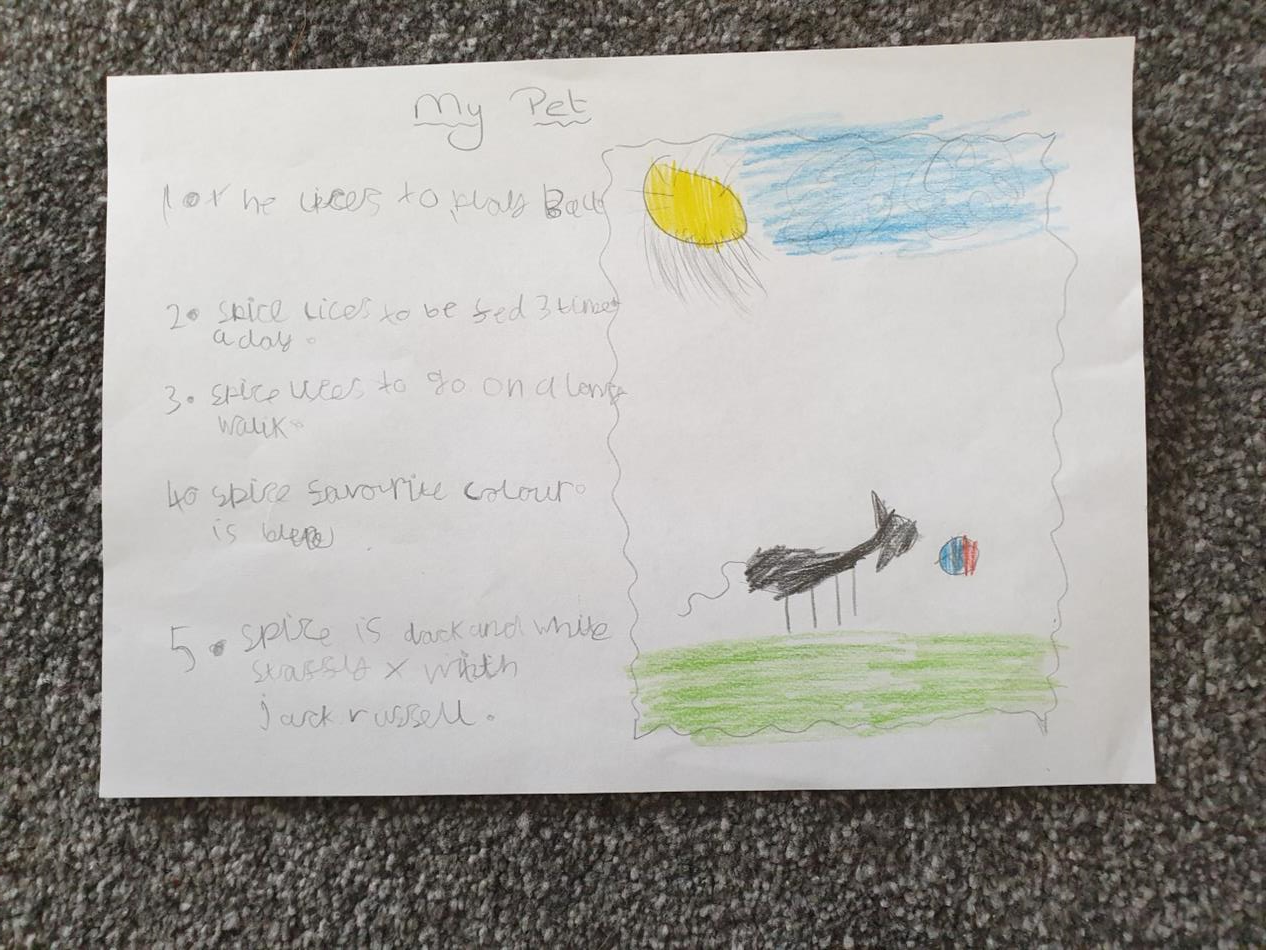 My Pet
1. he lices to play Ball
2. spice lices to be fed 3 times
a day.
3. spice lices to go on a long
walik.
4. spice favourite colour.
is
5. spice is darck and white
x with
jack russell.